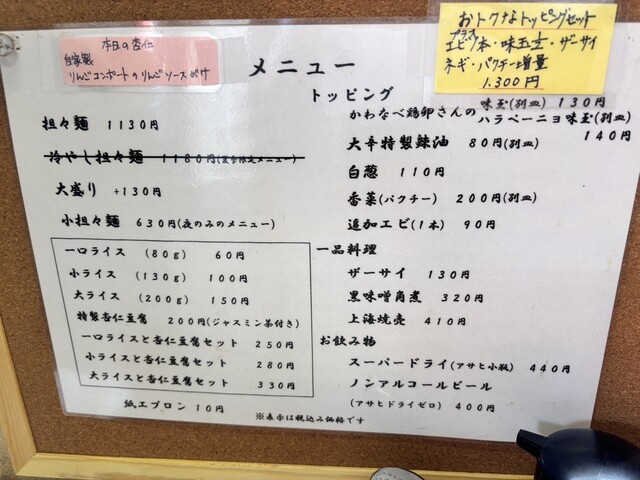 本日の杏仁
自家製
りんごコンポートのりんごソースがけ
おトクなトッピングセット
プラス
エビ1本・味玉½・ザーサイ
ネギ・パクチー増量
1.300円
メニュー
担々麺 1130円
冷やし担々麺 1180円(夏季限定メニュー)
大盛り +130円
小担々麺 630円(夜のみのメニュー)
一口ライス (80g) 60円
小ライス (130g) 100円
大ライス (200g) 150円
特製杏仁豆腐 200円(ジャスミン茶付き)
一口ライスと杏仁豆腐セット 250円
小ライスと杏仁豆腐セット 280円
大ライスと杏仁豆腐セット 330円
紙エプロン 10円
トッピング
味玉(別皿) 130円
かわなべ鶏卵さんの
ハラペーニョ味玉(別皿)
140円
大辛特製辣油 80円(別皿)
白葱 110円
香菜(パクチー) 200円(別皿)
追加エビ(1本) 90円
一品料理
ザーサイ 130円
黒味噌角煮 320円
上海焼売 410円
お飲み物
スーパードライ(アサヒ小瓶) 440円
ノンアルコールビール
(アサヒドライゼロ) 400円
※表示は税込み価格です